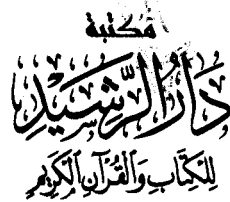 مكتبة
دَارُ الرَّشِيْدِ
لِلْكِتَابِ وَالْقُرْآنِ الْكَرِيْمِ